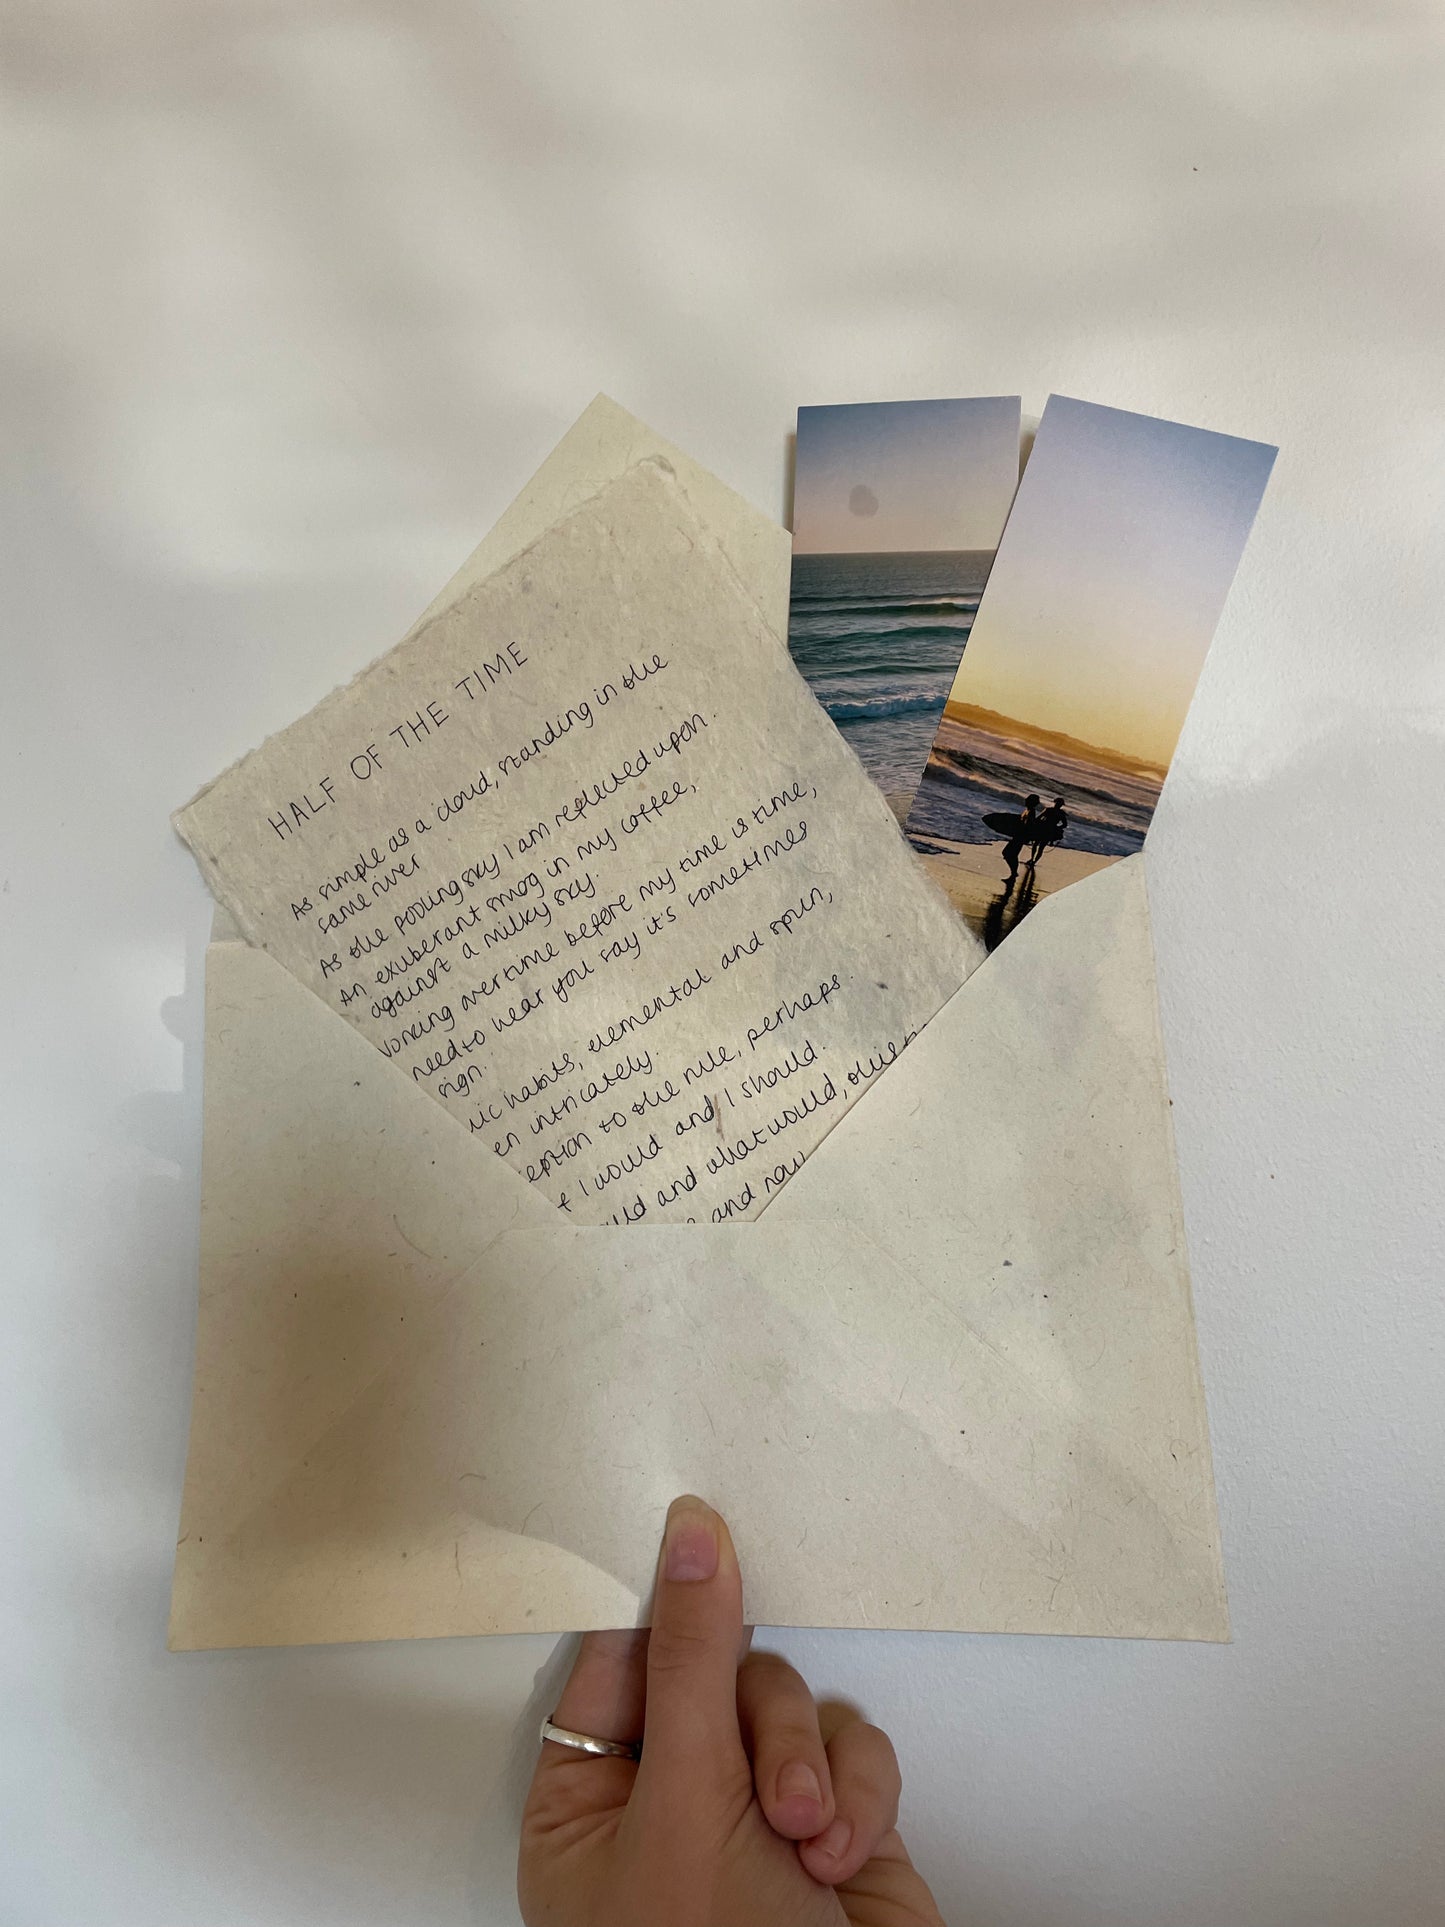 HALF OF THE TIME
As simple as a cloud, standing in the
same river
As the pooling sky I am reflected upon.
An exuberant smog in my coffee,
against a milky sky.
Working overtime before my time is time,
need to hear you say it's sometimes
sign.
habits, elemental and spun,
intricately.
to the rule, perhaps.
I would and I should.
and what would, this
and now